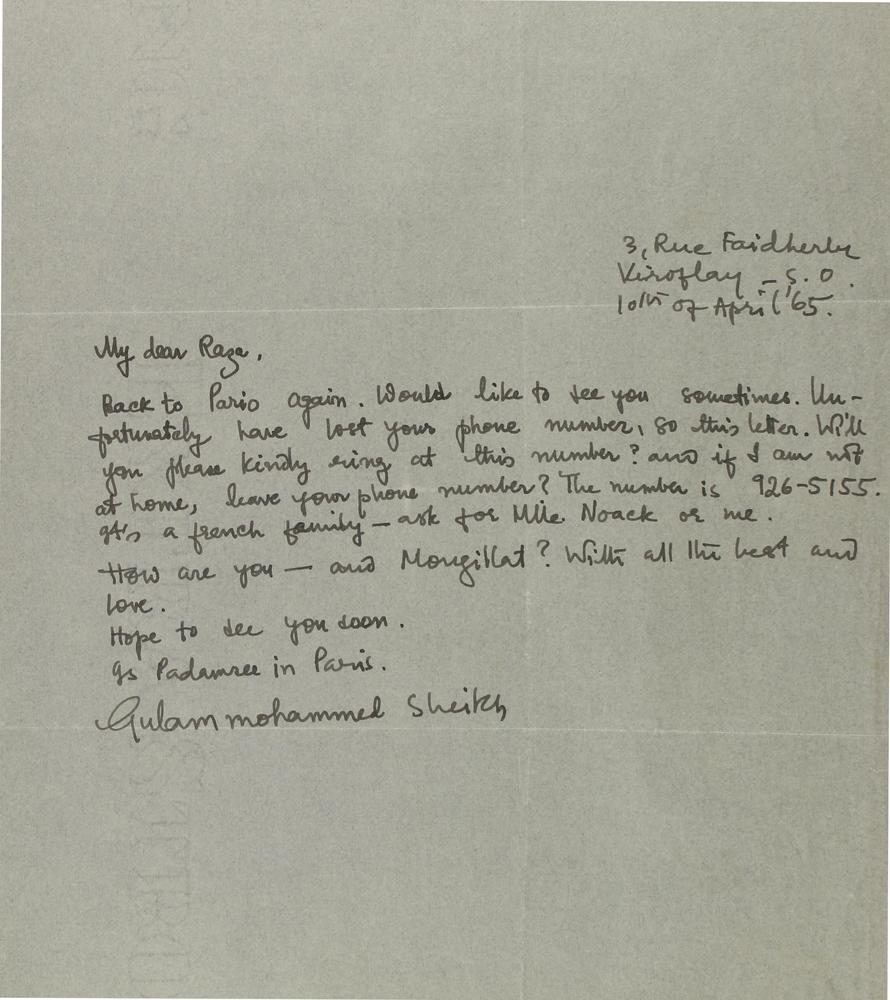 3, Rue Faidherbe
Viroflay – S. O.
10th of April '65.
My dear Raza,
Back to Paris again. Would like to see you sometimes. Un-
fortunately have lost your phone number, so this letter. Will
you please kindly ring at this number? and if I am not
at home, leave your phone number? The number is 926-5155.
It's a french family – ask for Mlle Noack or me.
How are you — and Mongillat? With all the best and
love.
Hope to see you soon.
Is Padamsee in Paris.
Gulammohammed Sheikh